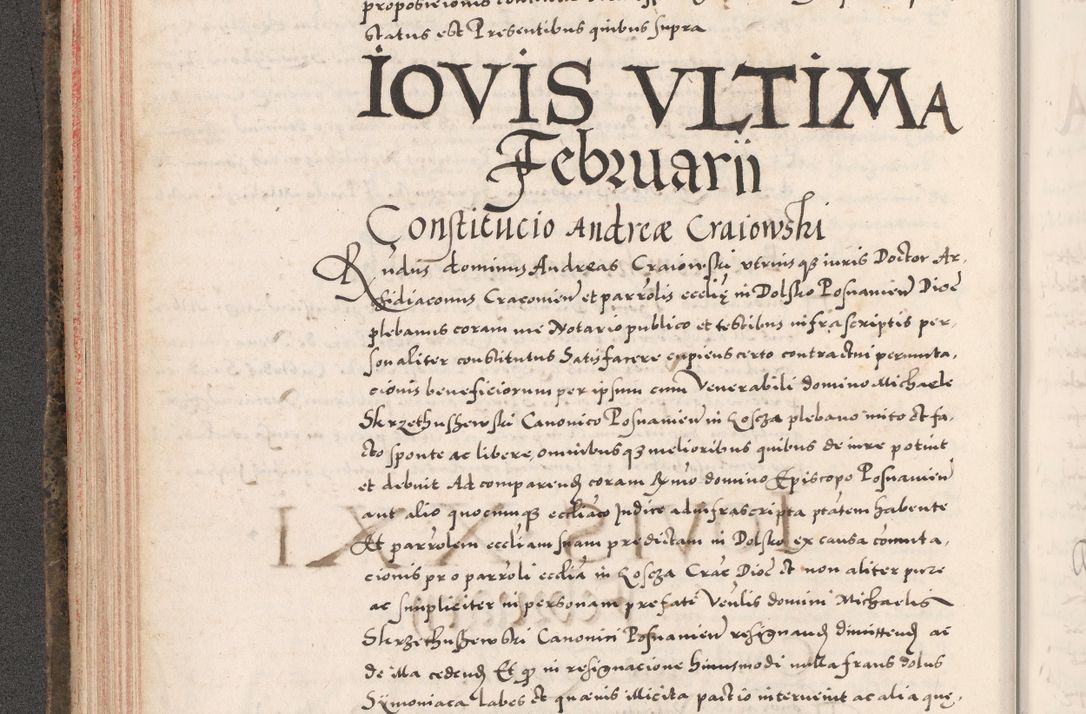 status est Presentibus quibus supra
IOVIS VLTIMA
Februarii
Constitucio Andreæ Craiowski
Rndus dominus Andreas Craiowski vtriusqз iuris Doctor Ar-
chidiaconus Cracouien et parrolis ecclię in Dolsko Posnanien Dioc
plebanus coram me Notario publico et testibus infrascriptis per-
sonaliter constitutus Satisfacere cupiens certo contractui permuta,
cionis beneficiorum per ipsum cum Venerabili domino Michaele
Skrzethuszewski Canonico Posnanien in Koscza plebano inito et fa-
cto sponte ac libere, omnibusqз melioribus quibus de iure potuit
et debuit Ad comparend coram Rmo domino Episcopo Posnanien
aut alio quocunqз ecclìaco Judice ad infrascripta ptatem habente
Et parrolem eccliam suam predictam in Dolsko ex causa comuta,
cionis pro parroli ecclia in Koscza Crac Dioc et non aliter pure
ac simpliciter in personam prefati Venlis domini Michaelis
Skrzethuszewski Canonici Posnanien resignand dimittend ac
de illa cedend Et qp in resignacione huiusmodi nulla fraus dolus
Symoniaca labes et quæuis illicita pactio interuenit ac alia quę,